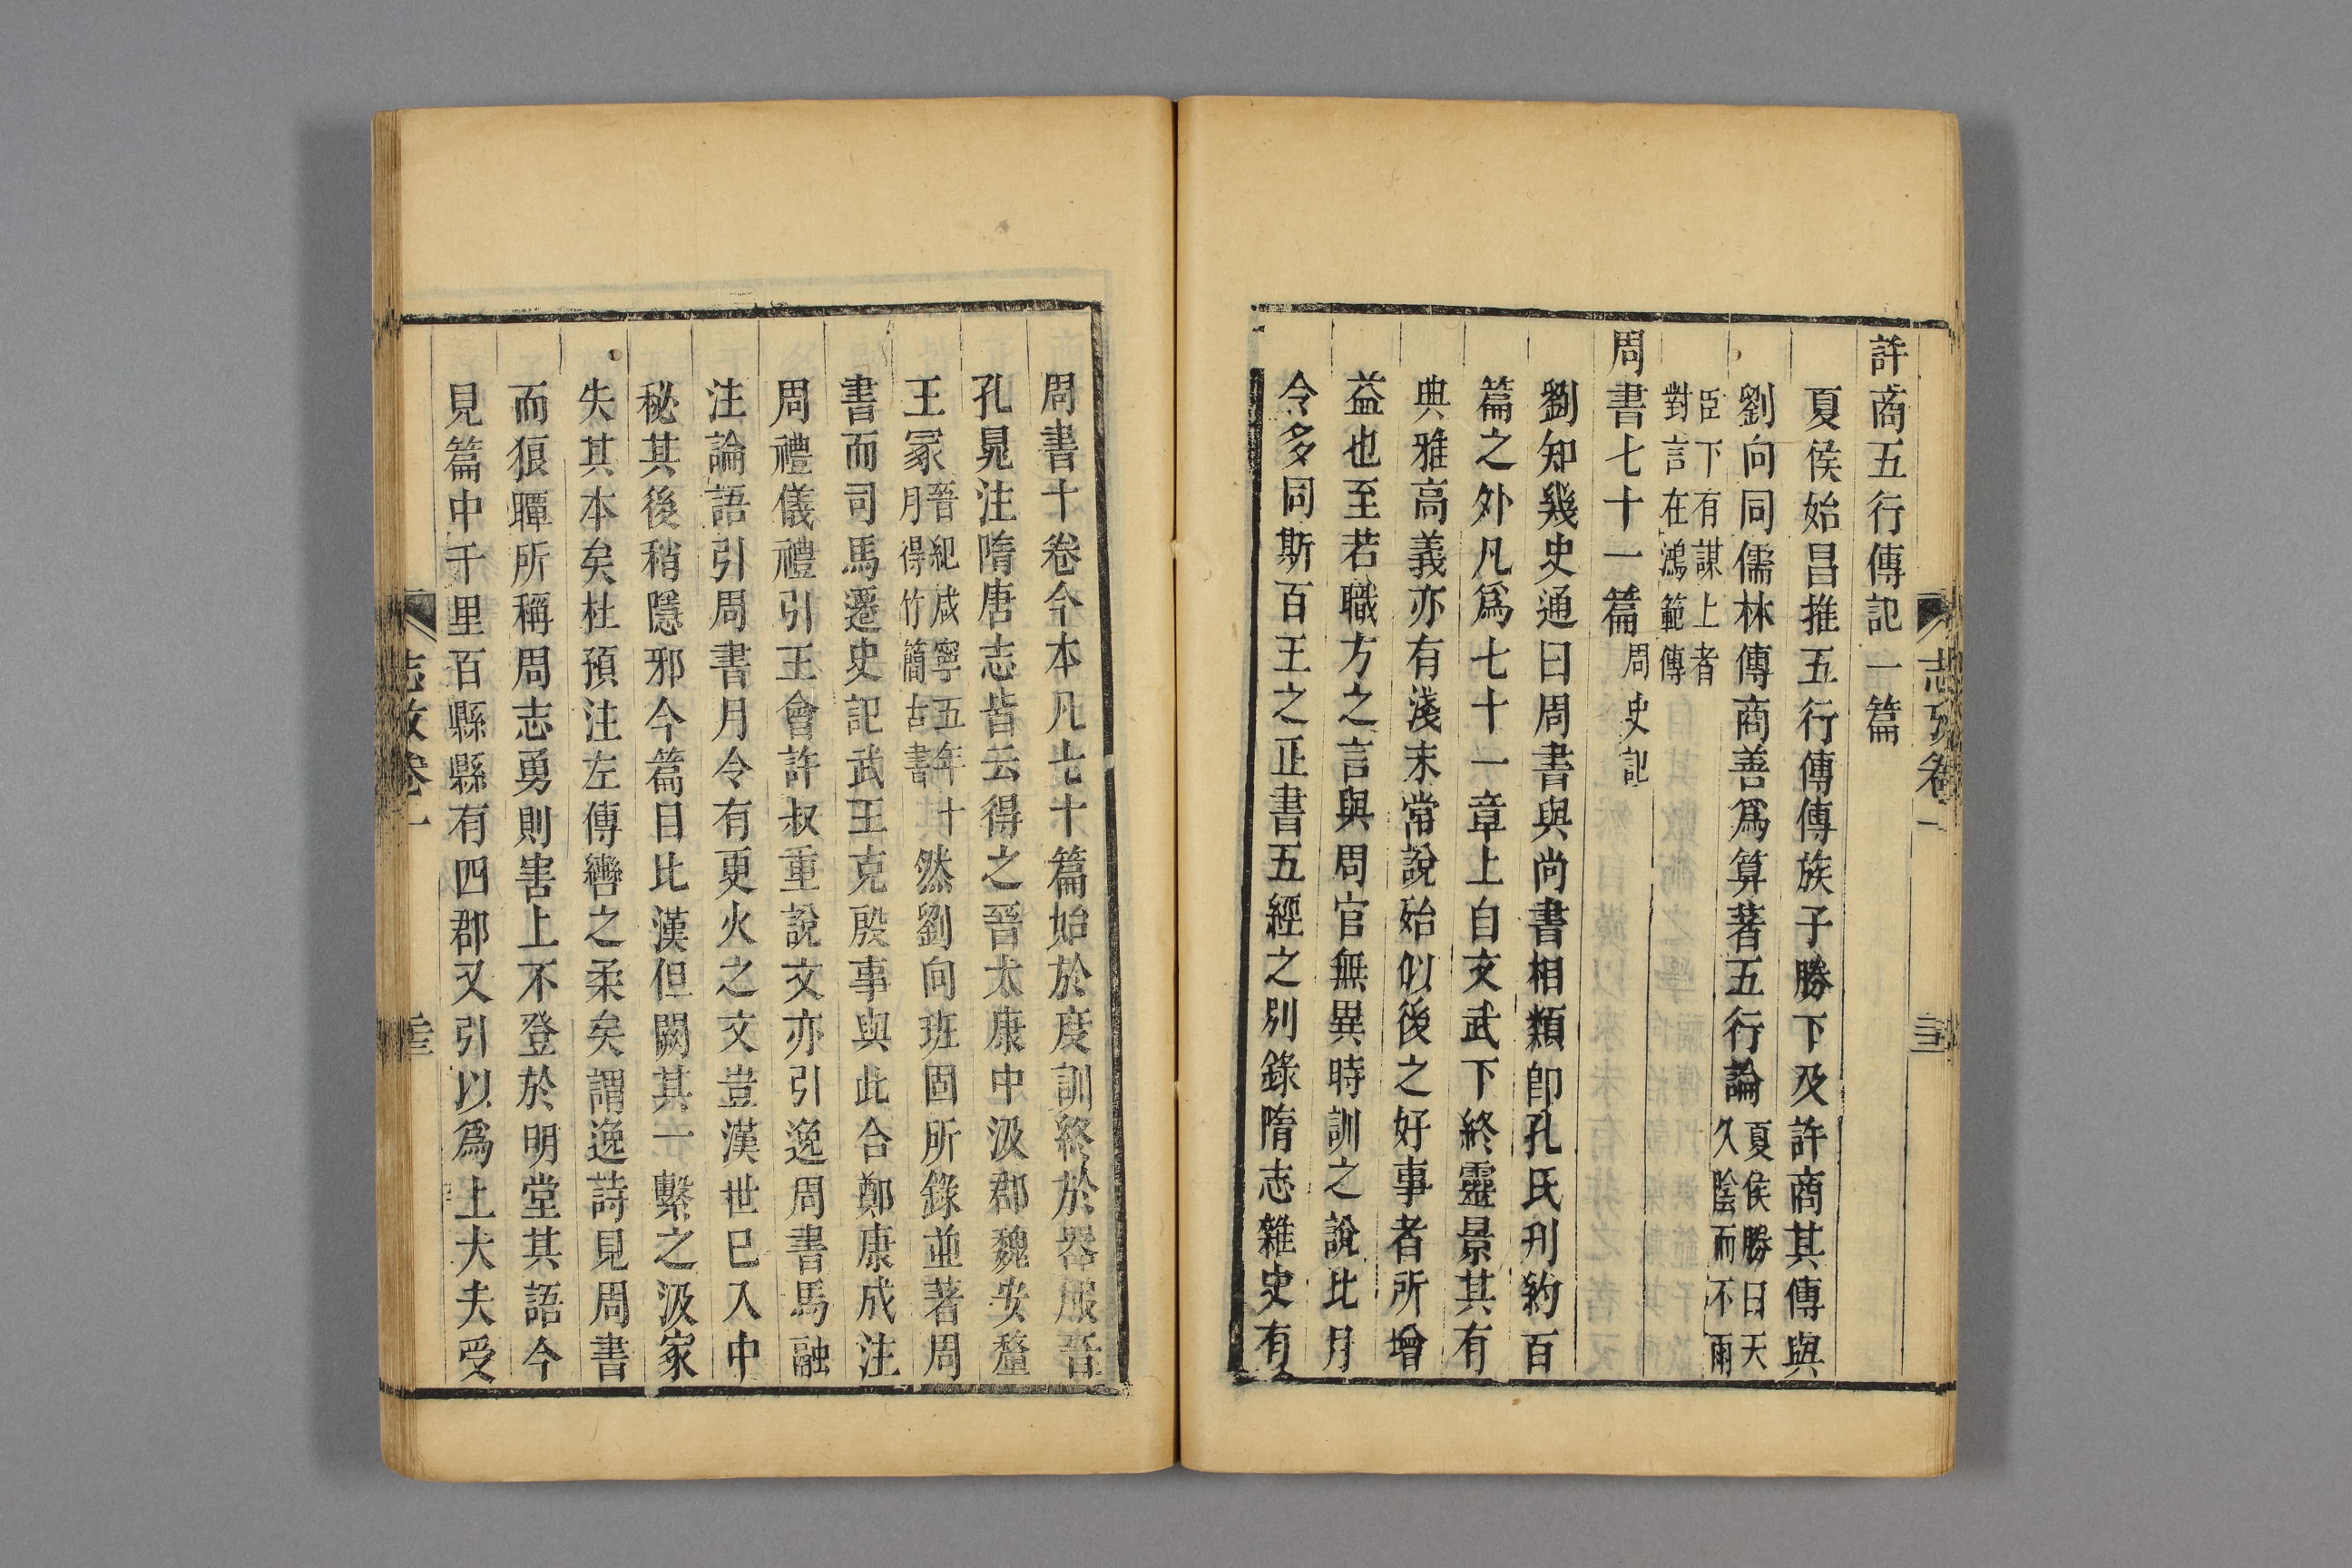 許商五行傳記一篇
夏侯始昌推五行傳傳族子勝下及許商其傳與
劉向同儒林傳商善爲算著五行論夏侯勝曰天久陰而不雨
臣下有謀上者對言在鴻範傳
周書七十一篇周史記
劉知幾史通曰周書與尚書相類卽孔氏刋約百
篇之外凡爲七十一章上自文武下終靈景其有
典雅高義亦有淺末常說殆似後之好事者所增
益也至若職方之言與周官無異時訓之說比月
令多同斯百王之正書五經之別錄隋志雜史有
志攷卷一
周書十卷今本凡七十篇始於度訓終於器服晉
孔晁注隋唐志皆云得之晉太康中汲郡魏安釐
王冢晉紀咸寧五年十月得竹簡古書然劉向班固所錄並著周
書而司馬遷史記武王克殷事與此合鄭康成注
周禮儀禮引王會許叔重說文亦引逸周書馬融
注論語引周書月令有更火之文豈漢世已入中
秘其後稍隱邪今篇目比漢但闕其一繫之汲冢
失其本矣杜預注左傳轡之柔矣謂逸詩見周書
而狼瞫所稱周志勇則害上不登於明堂其語今
見篇中千里百縣縣有四郡又引以爲上大夫受
志攷卷一